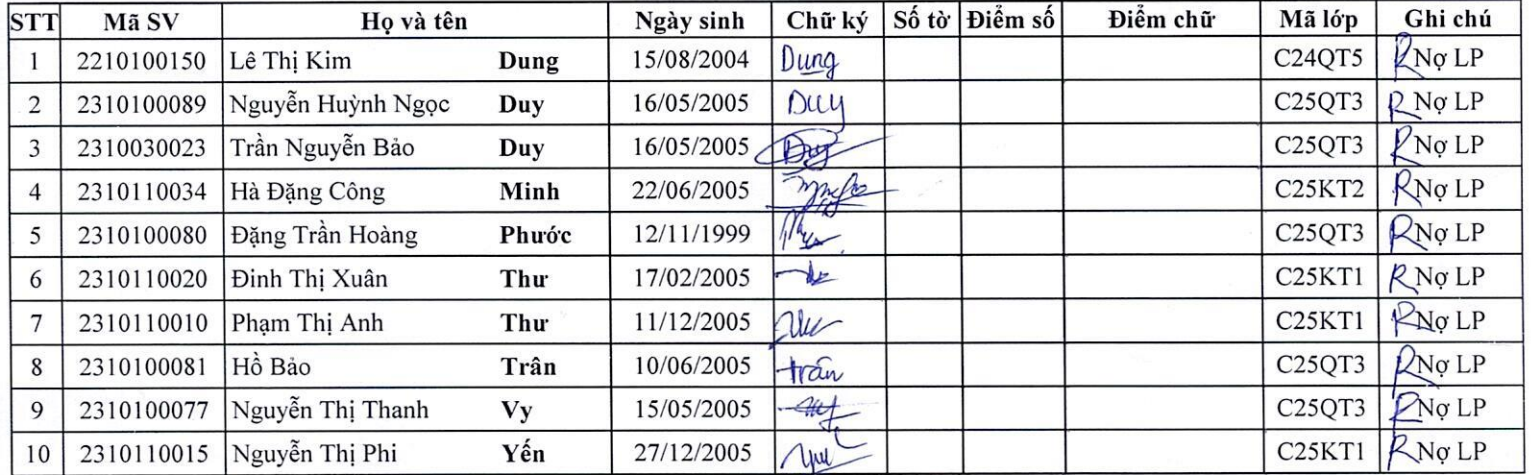 STT Mã SV Họ và tên Ngày sinh Chữ ký Số tờ Điểm số Điểm chữ Mã lớp Ghi chú
1 2210100150 Lê Thị Kim Dung 15/08/2004 Dung C24QT5 R Nợ LP
2 2310100089 Nguyễn Huỳnh Ngọc Duy 16/05/2005 Duy C25QT3 R Nợ LP
3 2310030023 Trần Nguyễn Bảo Duy 16/05/2005 Duy C25QT3 R Nợ LP
4 2310110034 Hà Đặng Công Minh 22/06/2005 C25KT2 R Nợ LP
5 2310100080 Đặng Trần Hoàng Phước 12/11/1999 C25QT3 R Nợ LP
6 2310110020 Đinh Thị Xuân Thư 17/02/2005 C25KT1 R Nợ LP
7 2310110010 Phạm Thị Anh Thư 11/12/2005 C25KT1 R Nợ LP
8 2310100081 Hồ Bảo Trân 10/06/2005 trân C25QT3 R Nợ LP
9 2310100077 Nguyễn Thị Thanh Vy 15/05/2005 C25QT3 R Nợ LP
10 2310110015 Nguyễn Thị Phi Yến 27/12/2005 C25KT1 R Nợ LP